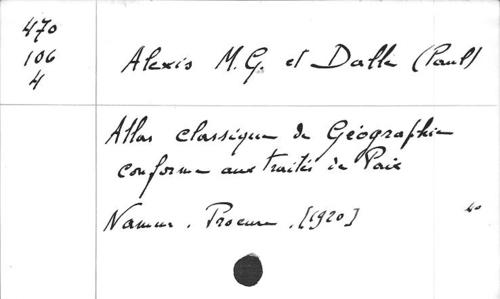 470
106
4
Alexis M.G. et Dalle (Paul)
Atlas classique de Géographie
conforme aux traités de Paix
Namur. Procure. [1920]
4o